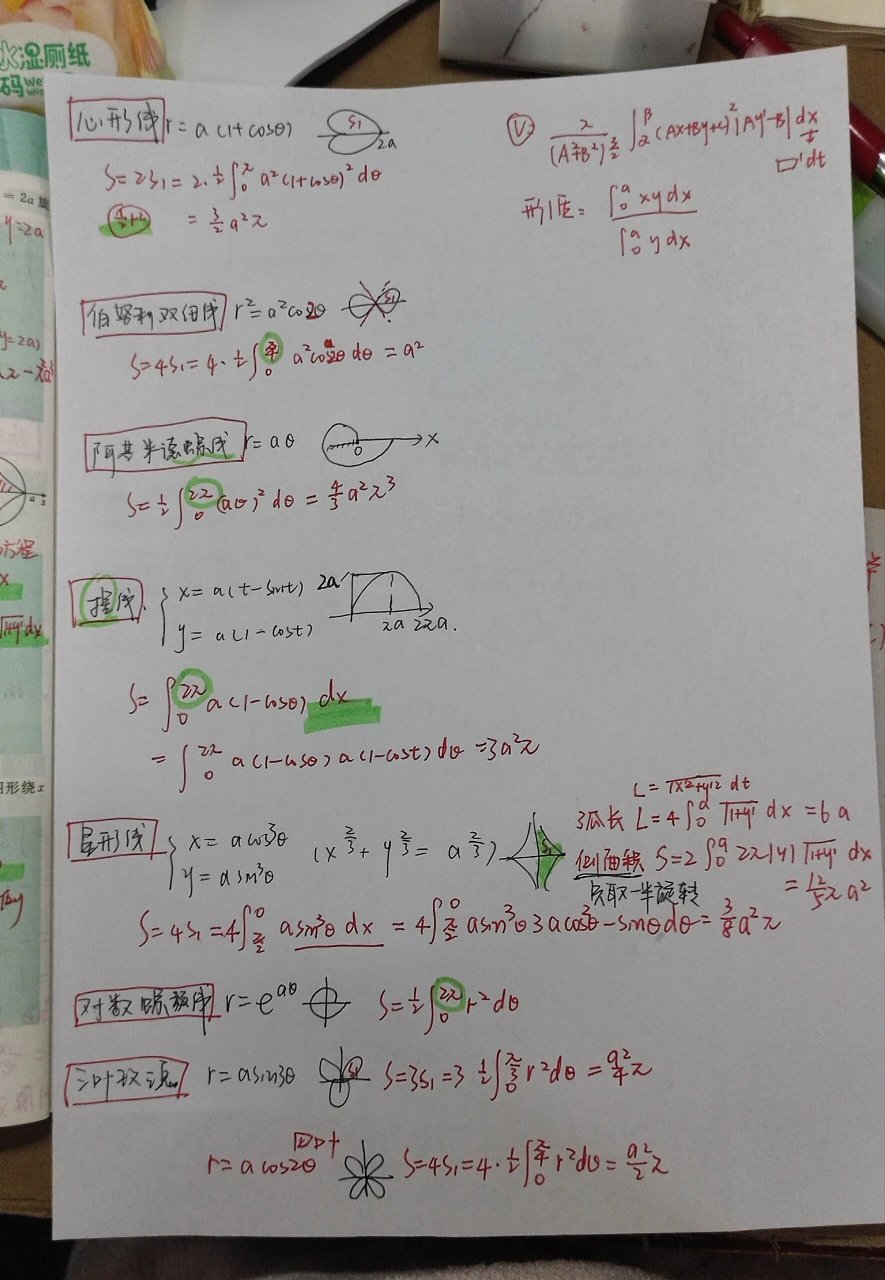 水湿厕纸
码
= 2a 旋
y=2a
y=2a)
方程
x
√1+y' dx
图形绕 x
心形线 r = a(1+cosθ) S₁ 2a
S=2S₁=2·½∫₀^π a²(1+cosθ)²dθ
= 3/2 a²π
V: π/(A²+B²)^(3/2) ∫_α^β (Ax+By+c)²|Ay'-B| dx/t
□'dt
形质= ∫₀^a xy dx / ∫₀^a y dx
伯努利双纽线 r²=a²cos2θ S₁
S=4S₁=4·½∫₀^(π/4) a²cos2θ dθ = a²
阿基米德螺线 r=aθ 0 x
S=½∫₀^(2π) (aθ)² dθ = 4/3 a²π³
摆线 { x=a(t-sint) 2a
y=a(1-cost) πa 2πa.
S= ∫₀^(2π) a(1-cosθ) dx
= ∫₀^(2π) a(1-cosθ) a(1-cost) dθ =3a²π
L= √x'²+y'² dt
星形线 { x=acos³θ (x^(2/3)+y^(2/3)=a^(2/3)) S₁ 弧长 L=4∫₀^a √1+y' dx =6a
y=asin³θ 侧面积 S=2∫₀^a 2π|y| √1+y' dx
只取一半旋转 = 12/5 πa²
S=4S₁=4∫_(π/2)^0 asin³θ dx = 4∫_(π/2)^0 asin³θ 3acos²θ -sinθ dθ = 3/8 a²π
对数螺旋线 r=e^(aθ) S=½∫₀^(2π) r²dθ
三叶玫瑰 r=asin3θ S₁ S=3S₁=3 ½∫₀^(π/3) r²dθ = a²/4 π
四叶
r=acos2θ S=4S₁=4·½∫₀^(π/4) r²dθ= a²/2 π